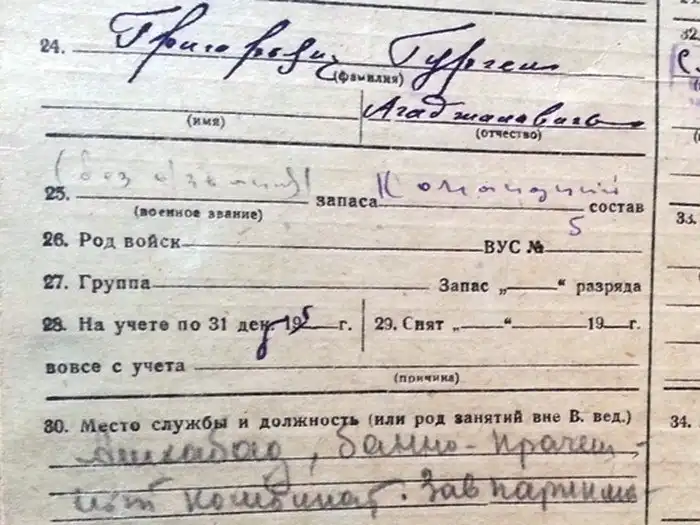 24. Григорьянц Гурген
(фамилия)
Агаджанович
(имя) (отчество)
25. (без звания) запаса Командный состав
(военное звание)
26. Род войск ВУС № 5
27. Группа Запас „ “ разряда
28. На учете по 31 дек. 195 г. 29. Снят „ “ 19 г.
вовсе с учета
(причина)
30. Место службы и должность (или род занятий вне В. вед.)
Ашхабад, Банно-прачеч-
ный комбинат. Зав парикма-
32.
33.
34.